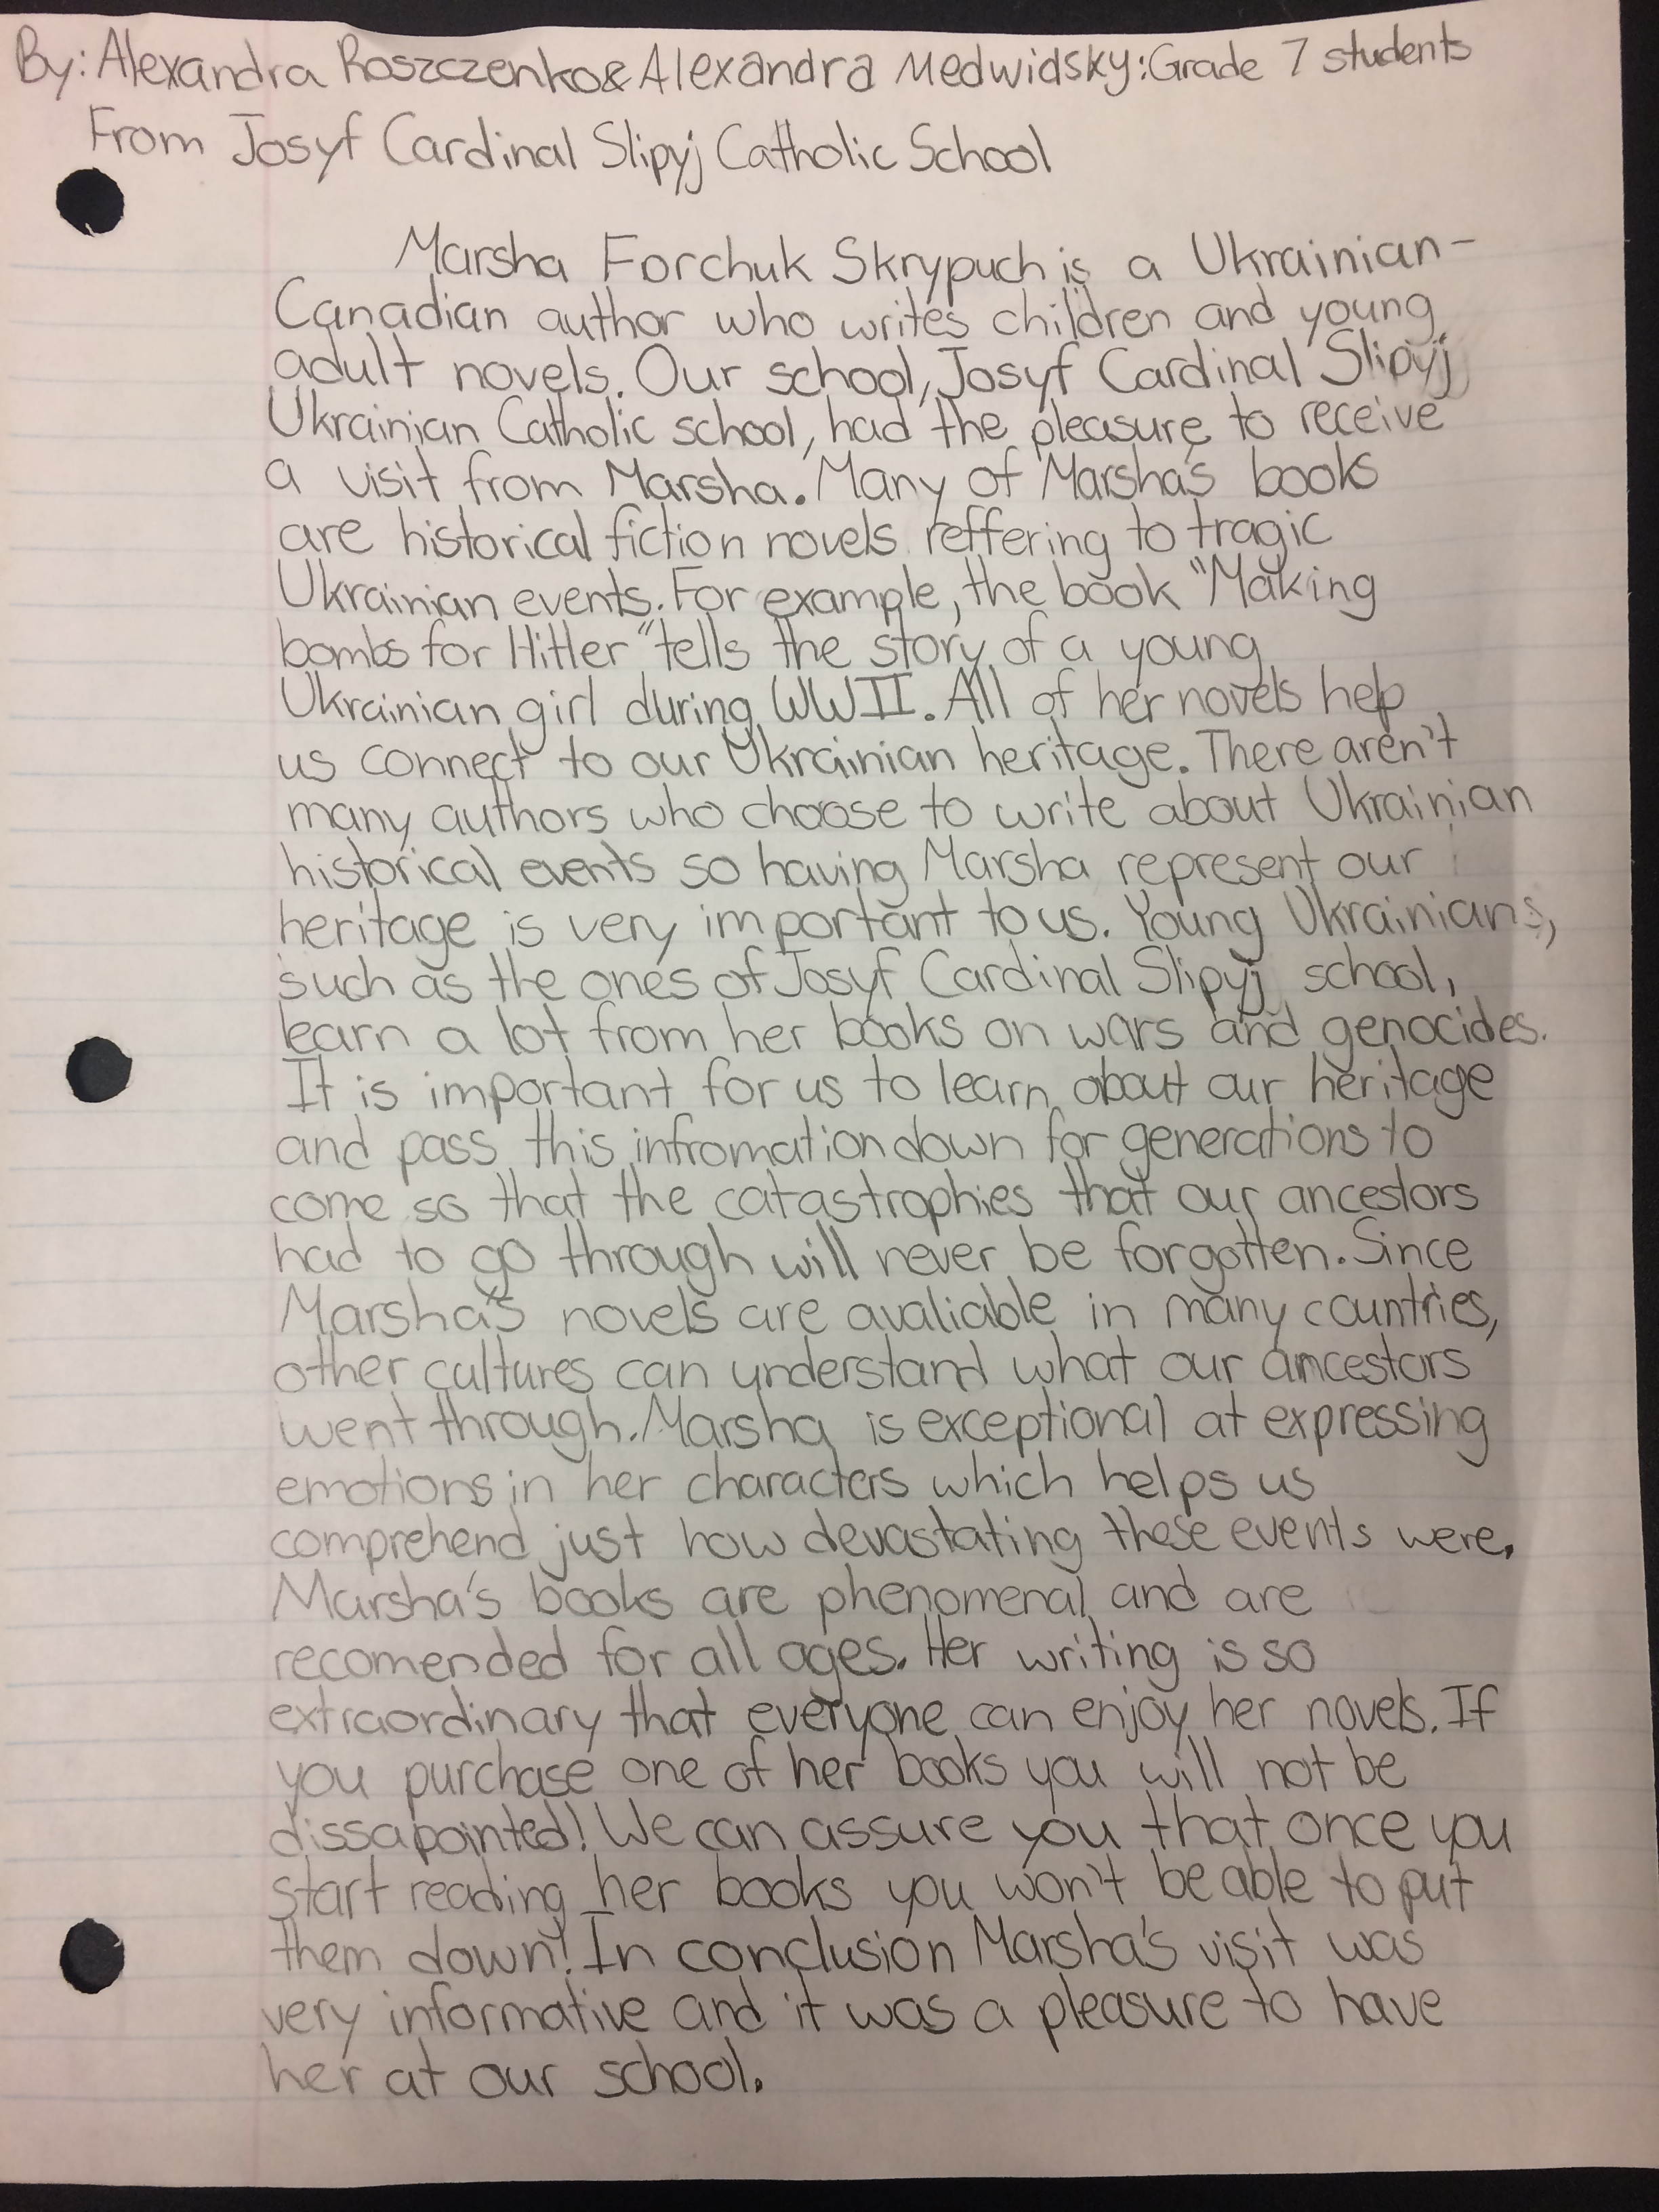 By: Alexandra Roszczenko & Alexandra Medwidsky: Grade 7 students
From Josyf Cardinal Slipyj Catholic School
Marsha Forchuk Skrypuch is a Ukrainian-
Canadian author who writes children and young
adult novels. Our school, Josyf Cardinal Slipyj
Ukrainian Catholic school, had the pleasure to receive
a visit from Marsha. Many of Marsha's books
are historical fiction novels reffering to tragic
Ukrainian events. For example, the book "Making
bombs for Hitler" tells the story of a young
Ukrainian girl during WWII. All of her novels help
us connect to our Ukrainian heritage. There aren't
many authors who choose to write about Ukrainian
historical events so having Marsha represent our
heritage is very important to us. Young Ukrainians,
such as the ones of Josyf Cardinal Slipyj school,
learn a lot from her books on wars and genocides.
It is important for us to learn about our heritage
and pass this infromation down for generations to
come so that the catastrophies that our ancestors
had to go through will never be forgotten. Since
Marsha's novels are avaliable in many countries,
other cultures can understand what our ancestors
went through. Marsha is exceptional at expressing
emotions in her characters which helps us
comprehend just how devastating these events were.
Marsha's books are phenomenal and are
recomended for all ages. Her writing is so
extraordinary that everyone can enjoy her novels. If
you purchase one of her books you will not be
dissapointed! We can assure you that once you
start reading her books you won't be able to put
them down! In conclusion Marsha's visit was
very informative and it was a pleasure to have
her at our school.